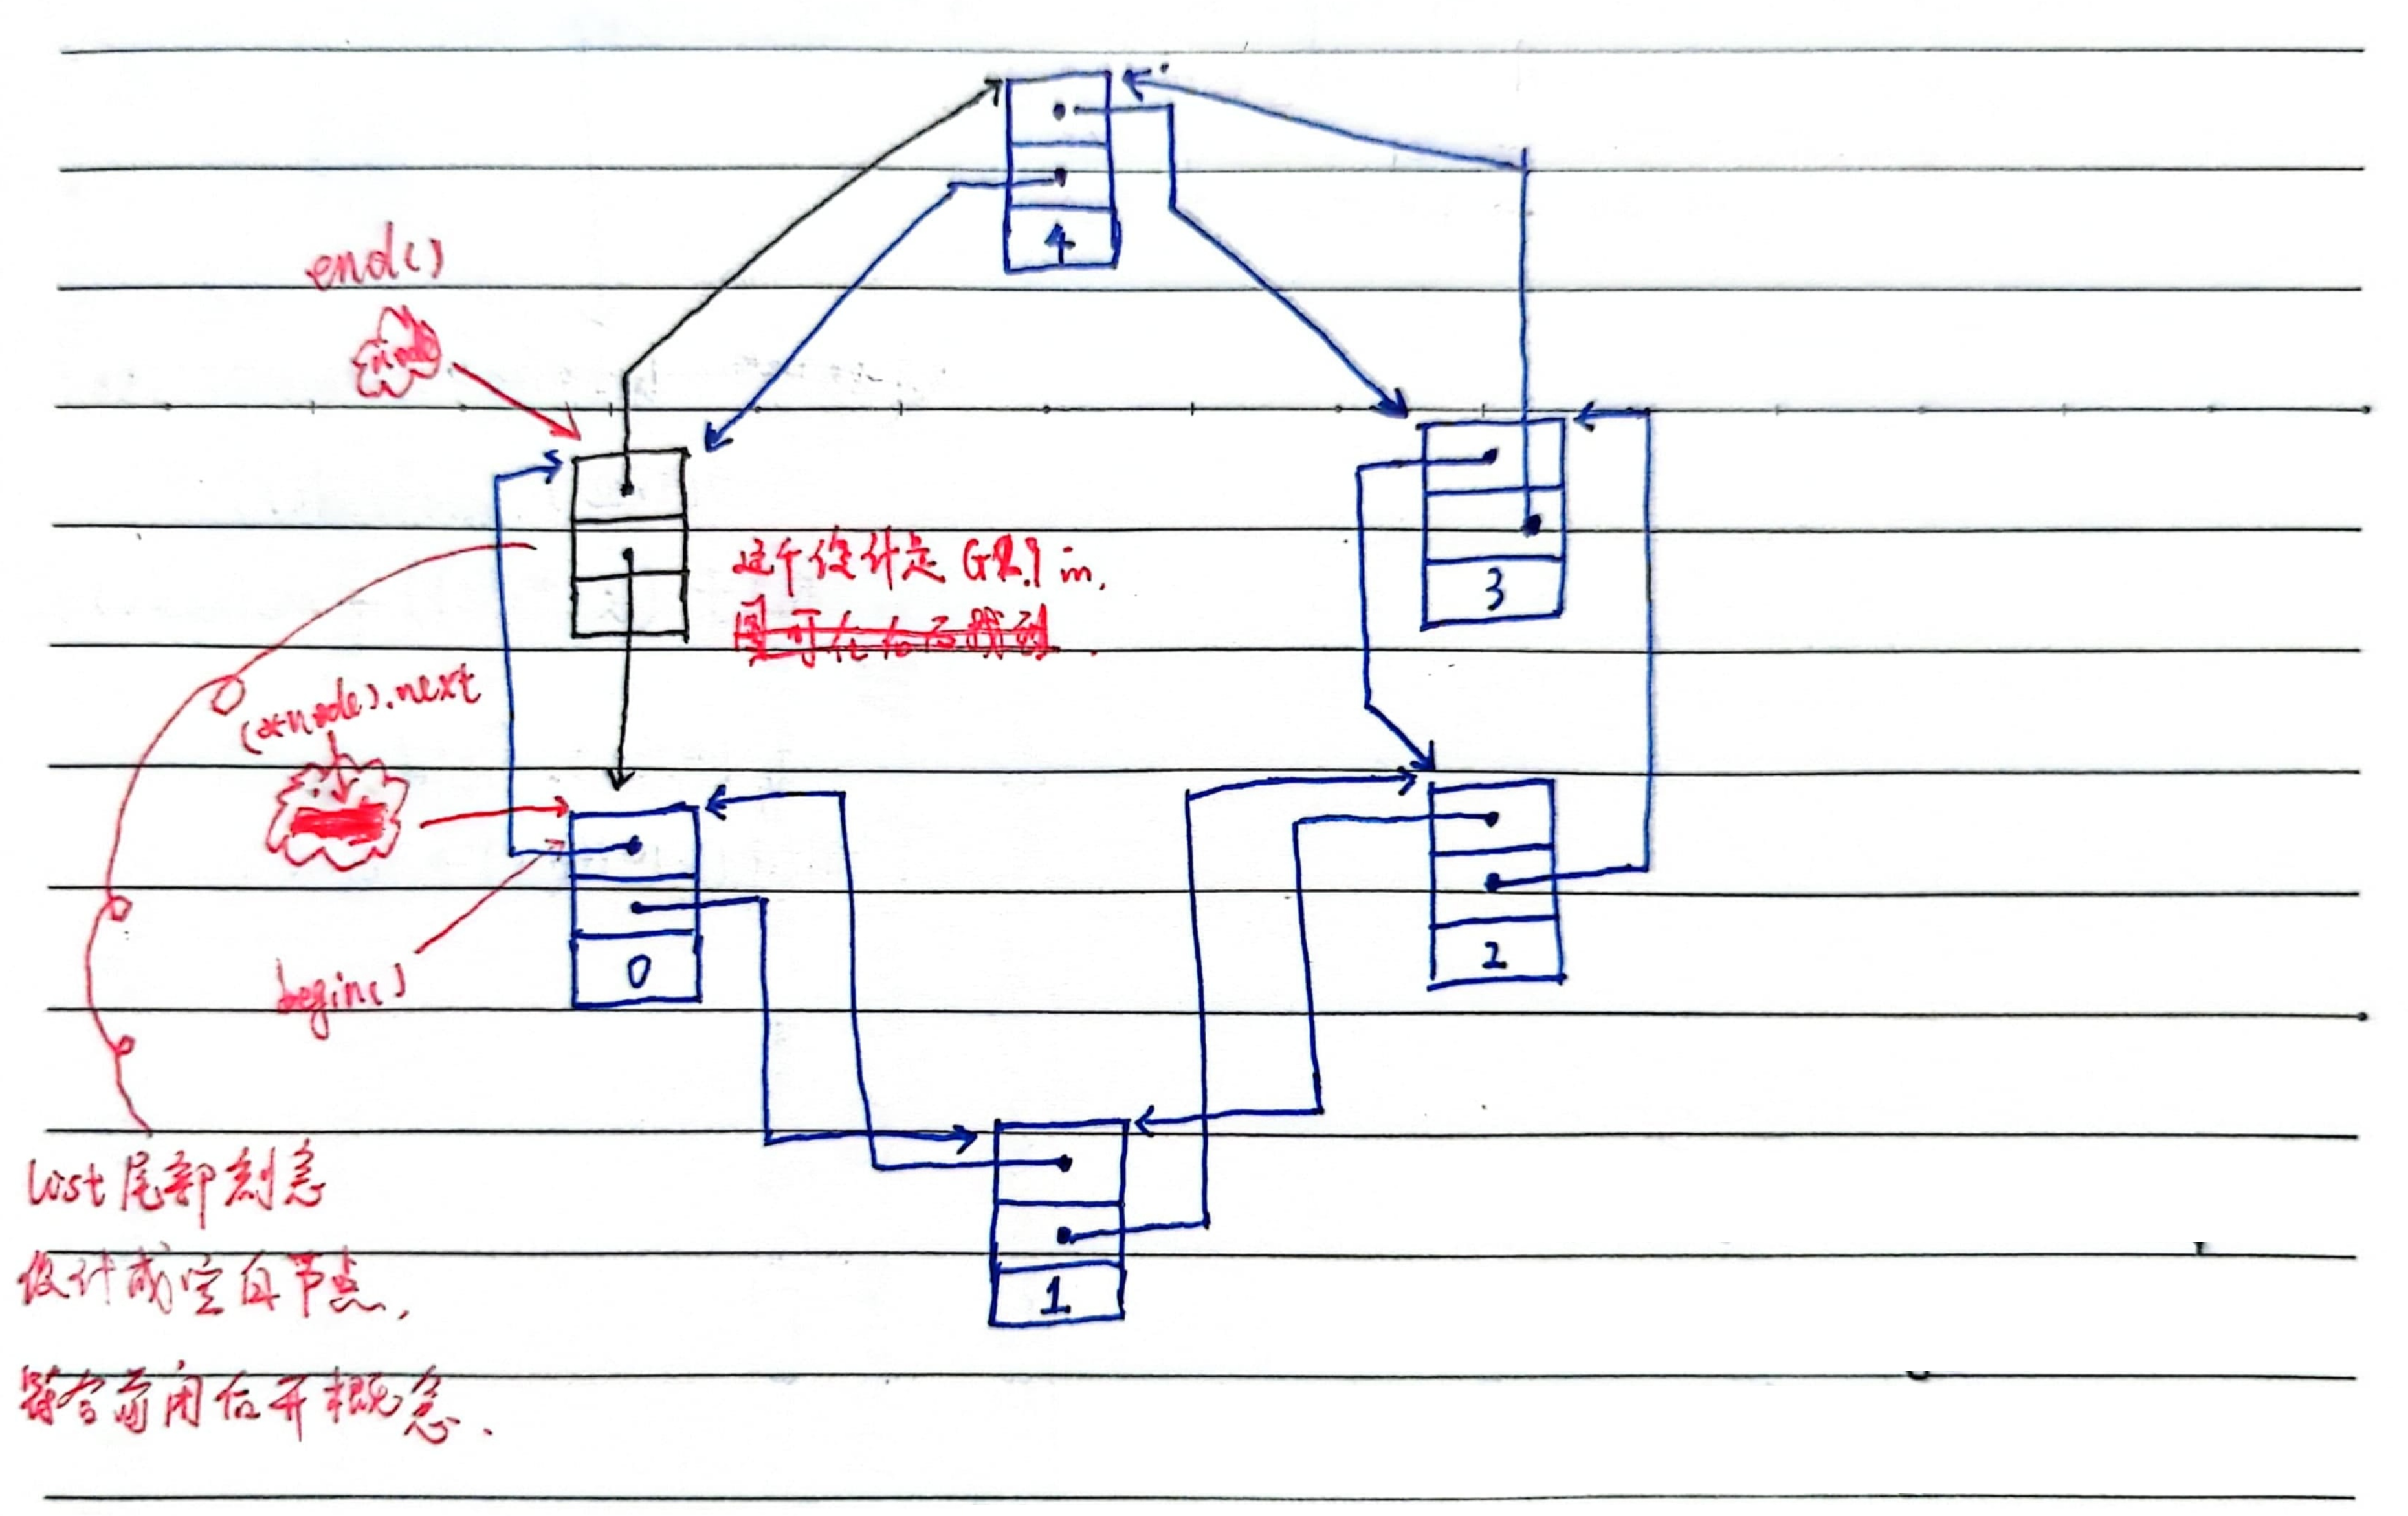 4
end()
node
3
这个设计是 G2.9 in.
(*node).next
0
begin()
2
list尾部刻意
设计成空白节点,
1
符合前闭后开概念.